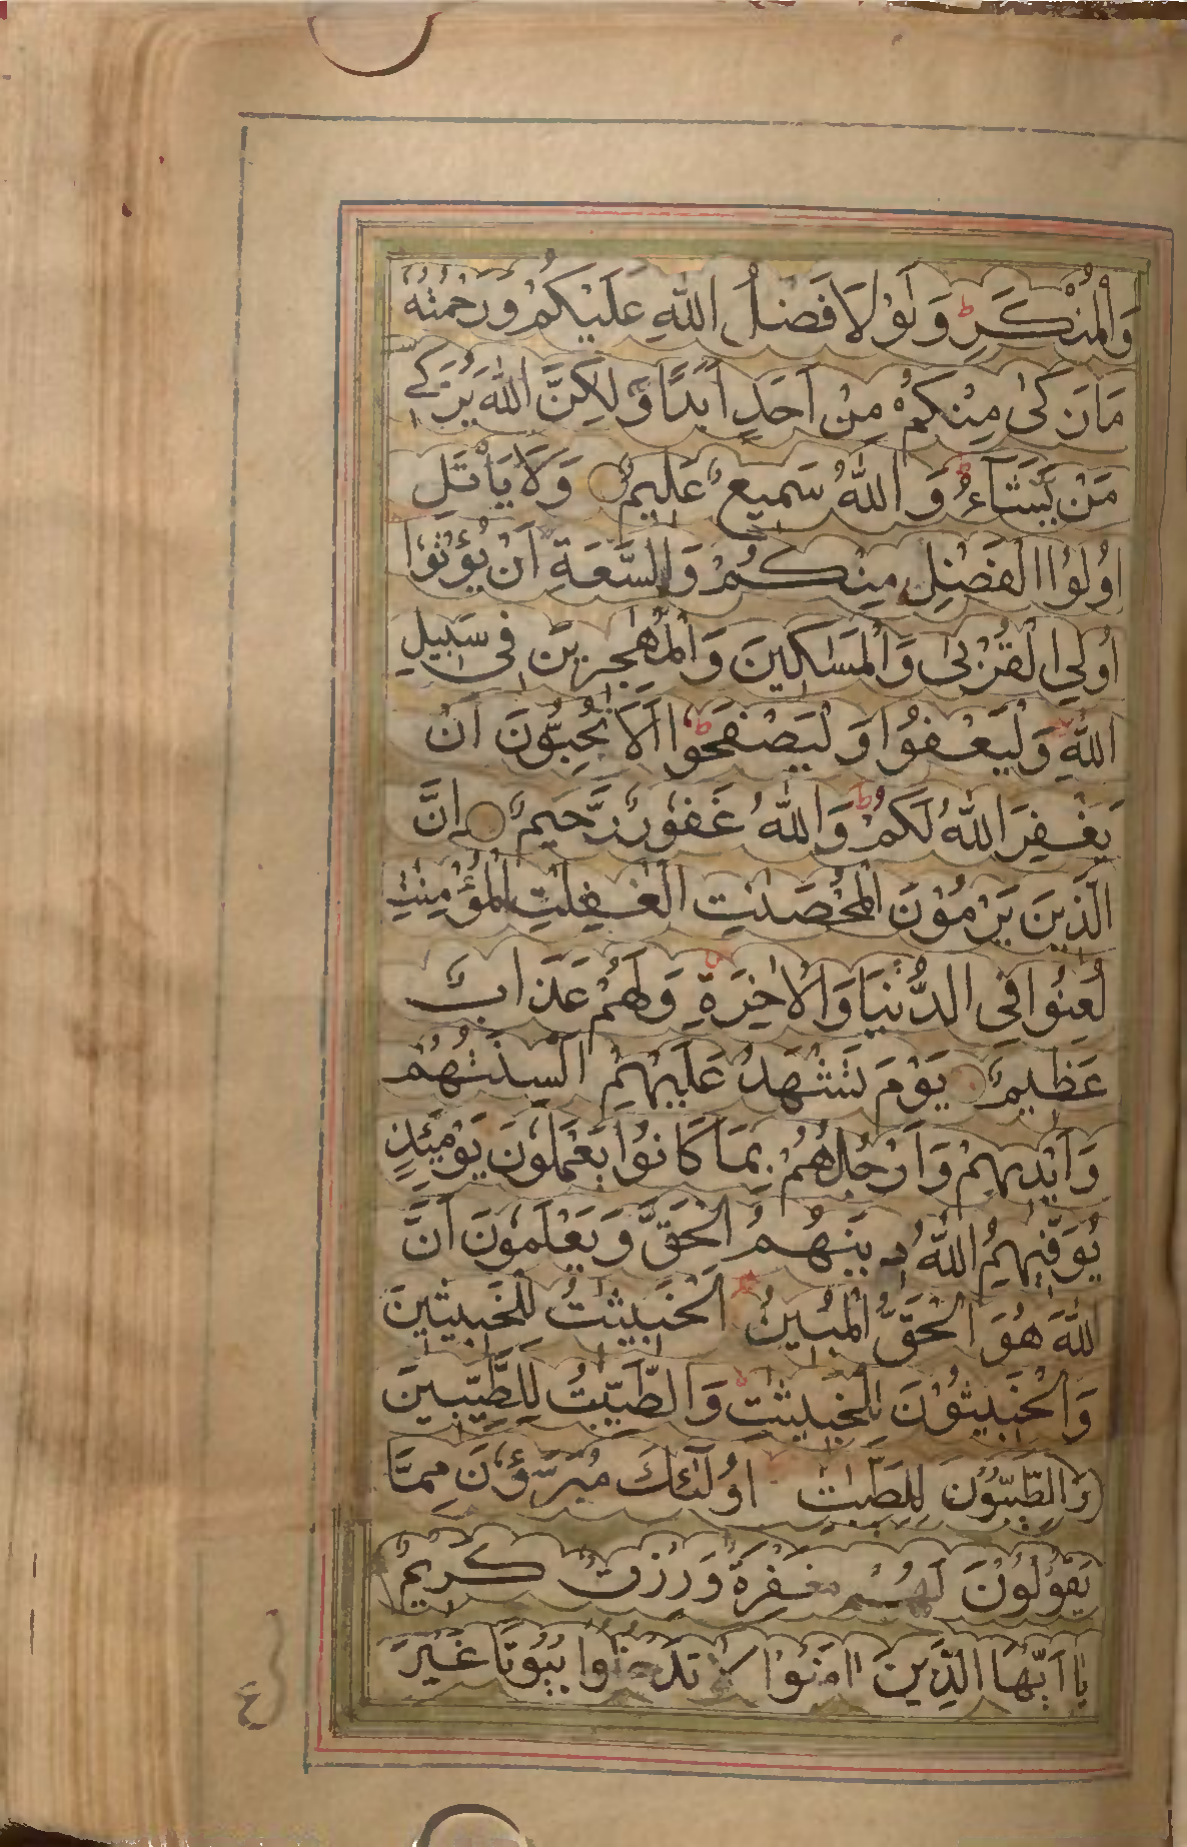 وَالْمُنْكَرِ ط وَلَوْلَا فَضْلُ اللّٰهِ عَلَيْكُمْ وَرَحْمَتُهٗ
مَا زَكٰى مِنْكُمْ مِنْ اَحَدٍ اَبَدًا وَّلٰكِنَّ اللّٰهَ يُزَكِّي
مَنْ يَّشَآءُ ط وَاللّٰهُ سَمِيعٌ عَلِيمٌ وَلَا يَأْتَلِ
اُولُوا الْفَضْلِ مِنْكُمْ وَالسَّعَةِ اَنْ يُؤْتُوْا
اُولِي الْقُرْبٰى وَالْمَسَاكِينَ وَالْمُهٰجِرِينَ فِي سَبِيلِ
اللّٰهِ وَلْيَعْفُوْا وَلْيَصْفَحُوْا ط اَلَا تُحِبُّوْنَ اَنْ
يَغْفِرَ اللّٰهُ لَكُمْ ط وَاللّٰهُ غَفُوْرٌ رَّحِيمٌ اِنَّ
الَّذِينَ يَرْمُوْنَ الْمُحْصَنٰتِ الْغٰفِلٰتِ الْمُؤْمِنٰتِ
لُعِنُوْا فِي الدُّنْيَا وَالْاٰخِرَةِ وَلَهُمْ عَذَابٌ
عَظِيمٌ يَوْمَ تَشْهَدُ عَلَيْهِمْ اَلْسِنَتُهُمْ
وَاَيْدِيهِمْ وَاَرْجُلُهُمْ بِمَا كَانُوْا يَعْمَلُوْنَ يَوْمَئِذٍ
يُوَفِّيهِمُ اللّٰهُ دِينَهُمُ الْحَقَّ وَيَعْلَمُوْنَ اَنَّ
للّٰهَ هُوَ الْحَقُّ الْمُبِينُ اَلْخَبِيثٰتُ لِلْخَبِيثِينَ
وَالْخَبِيثُوْنَ لِلْخَبِيثٰتِ وَالطَّيِّبٰتُ لِلطَّيِّبِينَ
وَالطَّيِّبُوْنَ لِلطَّيِّبٰتِ اُولٰٓئِكَ مُبَرَّؤُنَ مِمَّا
يَقُوْلُوْنَ لَهُمْ مَغْفِرَةٌ وَرِزْقٌ كَرِيمٌ
يَا اَيُّهَا الَّذِينَ اٰمَنُوْا لَا تَدْخُلُوا بُيُوْتًا غَيْرَ